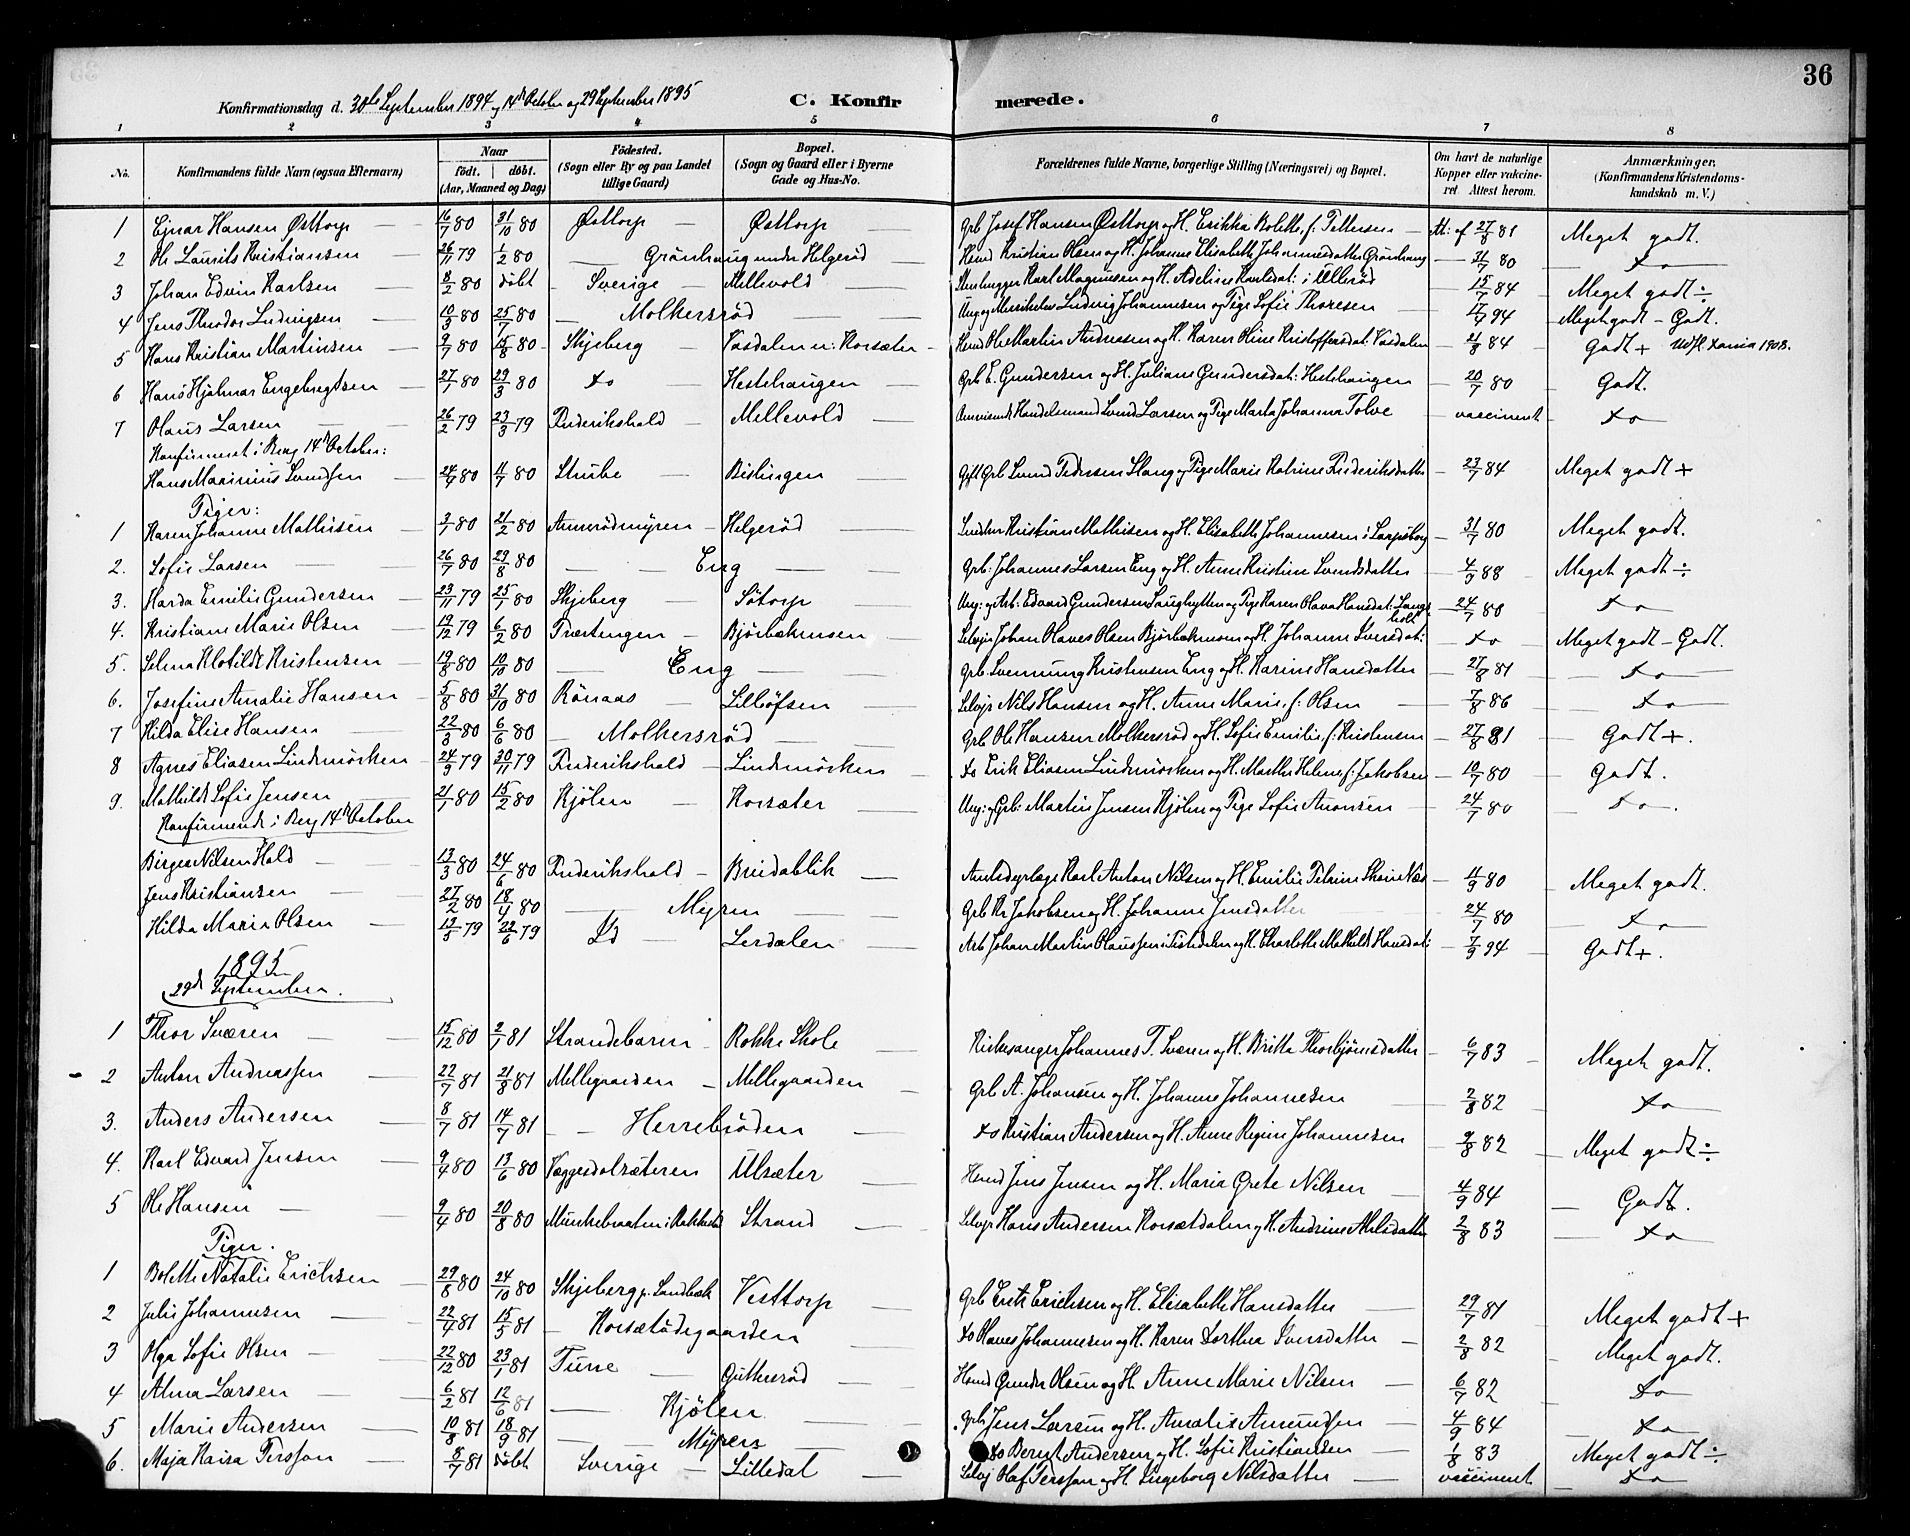 36
Konfirmationsdag d. 30te September 1894 og 14de October og 29 September 1895 C. Konfir merede.
1 2 3 4 5 6 7 8
No. Konfirmandens fulde Navn (ogsaa Efternavn) Naar født. døbt. (Aar, Maaned og Dag) Fødested. (Sogn eller By og paa Landet tillige Gaard) Bopæl. (Sogn og Gaard eller i Byerne Gade og Hus-No. Forældrenes fulde Navne, borgerlige Stilling (Næringsvei) og Bopæl. Om havt de naturlige Kopper eller vaccineret Attest herom. Anmærkninger. (Konfirmandens Kristendomskundskab m. V.)
1 Ejnar Hansen Østtorp 16/7 80 31/10 80 Østtorp Østtorp Grb Josef Hansen Østtorp og H. Erikka Bolette f: Pettersen Att: af 27/8 81 Meget godt.
2 Ole Laurits Kristiansen 26/11 79 1/2 80 Grønhaug under Helgerød Hmd Kristian Olsen og H. Johanne Elisabeth Johannesdatter Grønhaug 21/7 80 Do
3 Johan Edvin Karlsen 8/2 80 døbt Sverige Mellevold Stenhugger Karl Magnusen og H. Adeline Karlsdat: i Ullerød 15/7 84 Meget godt ÷
4 Jens Theodor Ludvigsen 10/3 80 25/7 80 Molkersrød Ung og Ludvig Johannesen og Pige Sofie Thoresen 17/9 94 Meget godt - Godt.
5 Hans Kristian Martinsen 9/7 80 15/8 80 Skjeberg Vasdalen u: Korsæter Hmd Ole Martin Andresen og H. Karen Oline Kristoffersdat: Vasdalen 21/8 84 Godt + Udfl. 1908.
6 Hans Hjalmar Engebrigtsen 27/1 80 29/3 80 Do Hestehaugen Grb E. Gundersen og H. Juliane Gundersdat: Hestehaugen 20/7 80 Godt.
7 Olaus Larsen 26/2 79 23/3 79 Frederikshald Mellevold Handelsmand Svend Larsen og Pige Marta Johanna Tolve vaccineret Do
Konfirmeret i Berg 14de October:
Hans Marinius Svendsen 24/4 80 11/7 80 Strube Bislingen Gft Grb Svend Pedersen Slang og Pige Marie Katrine Frederiksdatter 23/7 84 Meget godt +
Piger:
1 Karen Johanne Mathisen 3/1 80 21/2 80 Annerødmyren Helgerød Kristian Mathisen og H. Elisabeth Johannesen i Sarpsborg 31/7 80 Meget godt.
2. Sofie Larsen 26/7 80 29/8 80 Eng Grb: Johannes Larsen Eng og H. Anne Kristine Svendsdatter 4/9 88 Meget godt ÷
3. Harda Emilie Gundersen 23/11 79 25/1 80 Skjeberg Søtorp Ung: og Arb: Edvard Gundersen og Pige Karen Olava Hansdat: 24/7 80 Do
4. Kristiane Marie Olsen 19/12 79 6/2 80 Trættingen Bjørbækmosen Selvejer Johan Olaves Olsen Bjørbækmosen og H. Johanne Sversdat: Do Meget godt - Godt.
5. Selma Klotilde Kristensen 19/8 80 10/10 80 Eng Grb. Svennung Kristensen Eng og H. Karine Hansdatter 27/8 81 Do
6. Josefine Amalie Hansen 5/8 80 31/10 80 Rønaas Lilløfsen Selvejer Nils Hansen og H. Anne Marie, f: Olsen 7/8 86 Do
7 Hilda Elise Hansen 22/3 80 6/6 80 Molkersrød Grb Ole Hansen Molkersrød og H. Sofie Emilie, f. Kristensen 27/8 81 Godt +.
8 Agnes Eliasen Lindemörken 24/9 79 30/11 79 Frederikshald Lindemörken Do Erik Eliasen Lindemörken og H. Marthe Helene f: Jakobsen 10/7 80 Godt.
9. Mathilde Sofie Jensen 21/1 80 15/2 80 Kjølen Korsæter Ung: og Grb: Martin Jensen Kjølen og Pige Sofie Aronsen 24/7 80 Do
Konfirmerede i Berg 14de October
Birger Nilsen Hald 13/3 80 24/6 80 Frederikshald Breidablik Amtsdyrlæge Karl Anton Nilsen og H. Emilie Petrine 11/9 80 Meget godt.
Jens Kristiansen 27/2 80 18/4 80 Myren Grb Kr Jakobsen og H. Johanne Jensdatter 24/7 80 Do
Hilda Marie Olsen 13/5 79 22/6 79 Id Lerdalen Arb Johan Martin Olaussen i Tistedalen og H. Charlotte Mathilde Hansdat: 7/9 94 Godt +.
1895
29de September.
1 Thor Sværen 15/12 80 2/1 81 Strandebarm Rokke Skole Kirkesanger Johannes T. Sværen og H. Britta Thorbjørnsdatter 6/7 83 Meget godt.
2 Anton Andreassen 22/7 81 21/8 81 Mellegaarden Mellegaarden Grb A. Johansen og H. Johanne Johannesen 2/8 82 Do
3. Anders Andersen 8/7 81 14/7 81 Herrebrøden Do Kristian Andersen og H. Anne Regine Johannesen 9/8 82 Meget godt ÷
4. Karl Edvard Jensen 9/4 80 13/6 80 Væggesdalsæteren Ulsæter Hmd Jens Jensen og H. Maria Grete Nilsen 4/9 84 Godt.
5 Ole Hansen 9/4 80 20/8 80 Strand Selvejer Hans Andersen Korsætdalen og H. Andrine Abelsdatter 2/8 83 Do
Piger.
1 Bolette Natalie Erichsen 29/8 80 24/10 80 Skjeberg p. Sandbæk Vesttorp Grb Erik Erichsen og H. Elisabeth Hansdatter 29/7 81 Meget godt +
2 Julie Johannesen 22/4 81 15/5 81 Korsætødegaarden Do Olaves Johannesen og H. Karen Dorthea Sversdatter 2/8 82 Meget godt.
3 Olga Sofie Olsen 22/12 80 23/1 81 Tune Guttersrød Hmd Gunder Olsen og H. Anne Marie Nilsen 6/7 82 Do
4 Alma Larsen 6/2 81 12/6 81 Kjølen Grb Jens Larsen og H. Amalie Amundsen 4/9 84 Do
5 Marie Andersen 10/8 81 18/9 81 Myren Do Bernt Andersen og H. Sofie Kristiansen 1/8 83 Meget godt ÷
6. Maja Kaisa Persson 8/7 81 døbt Sverige Lilledal Selvej Olaf Persson og H. Ingeborg Nilsdatter vaccineret Do